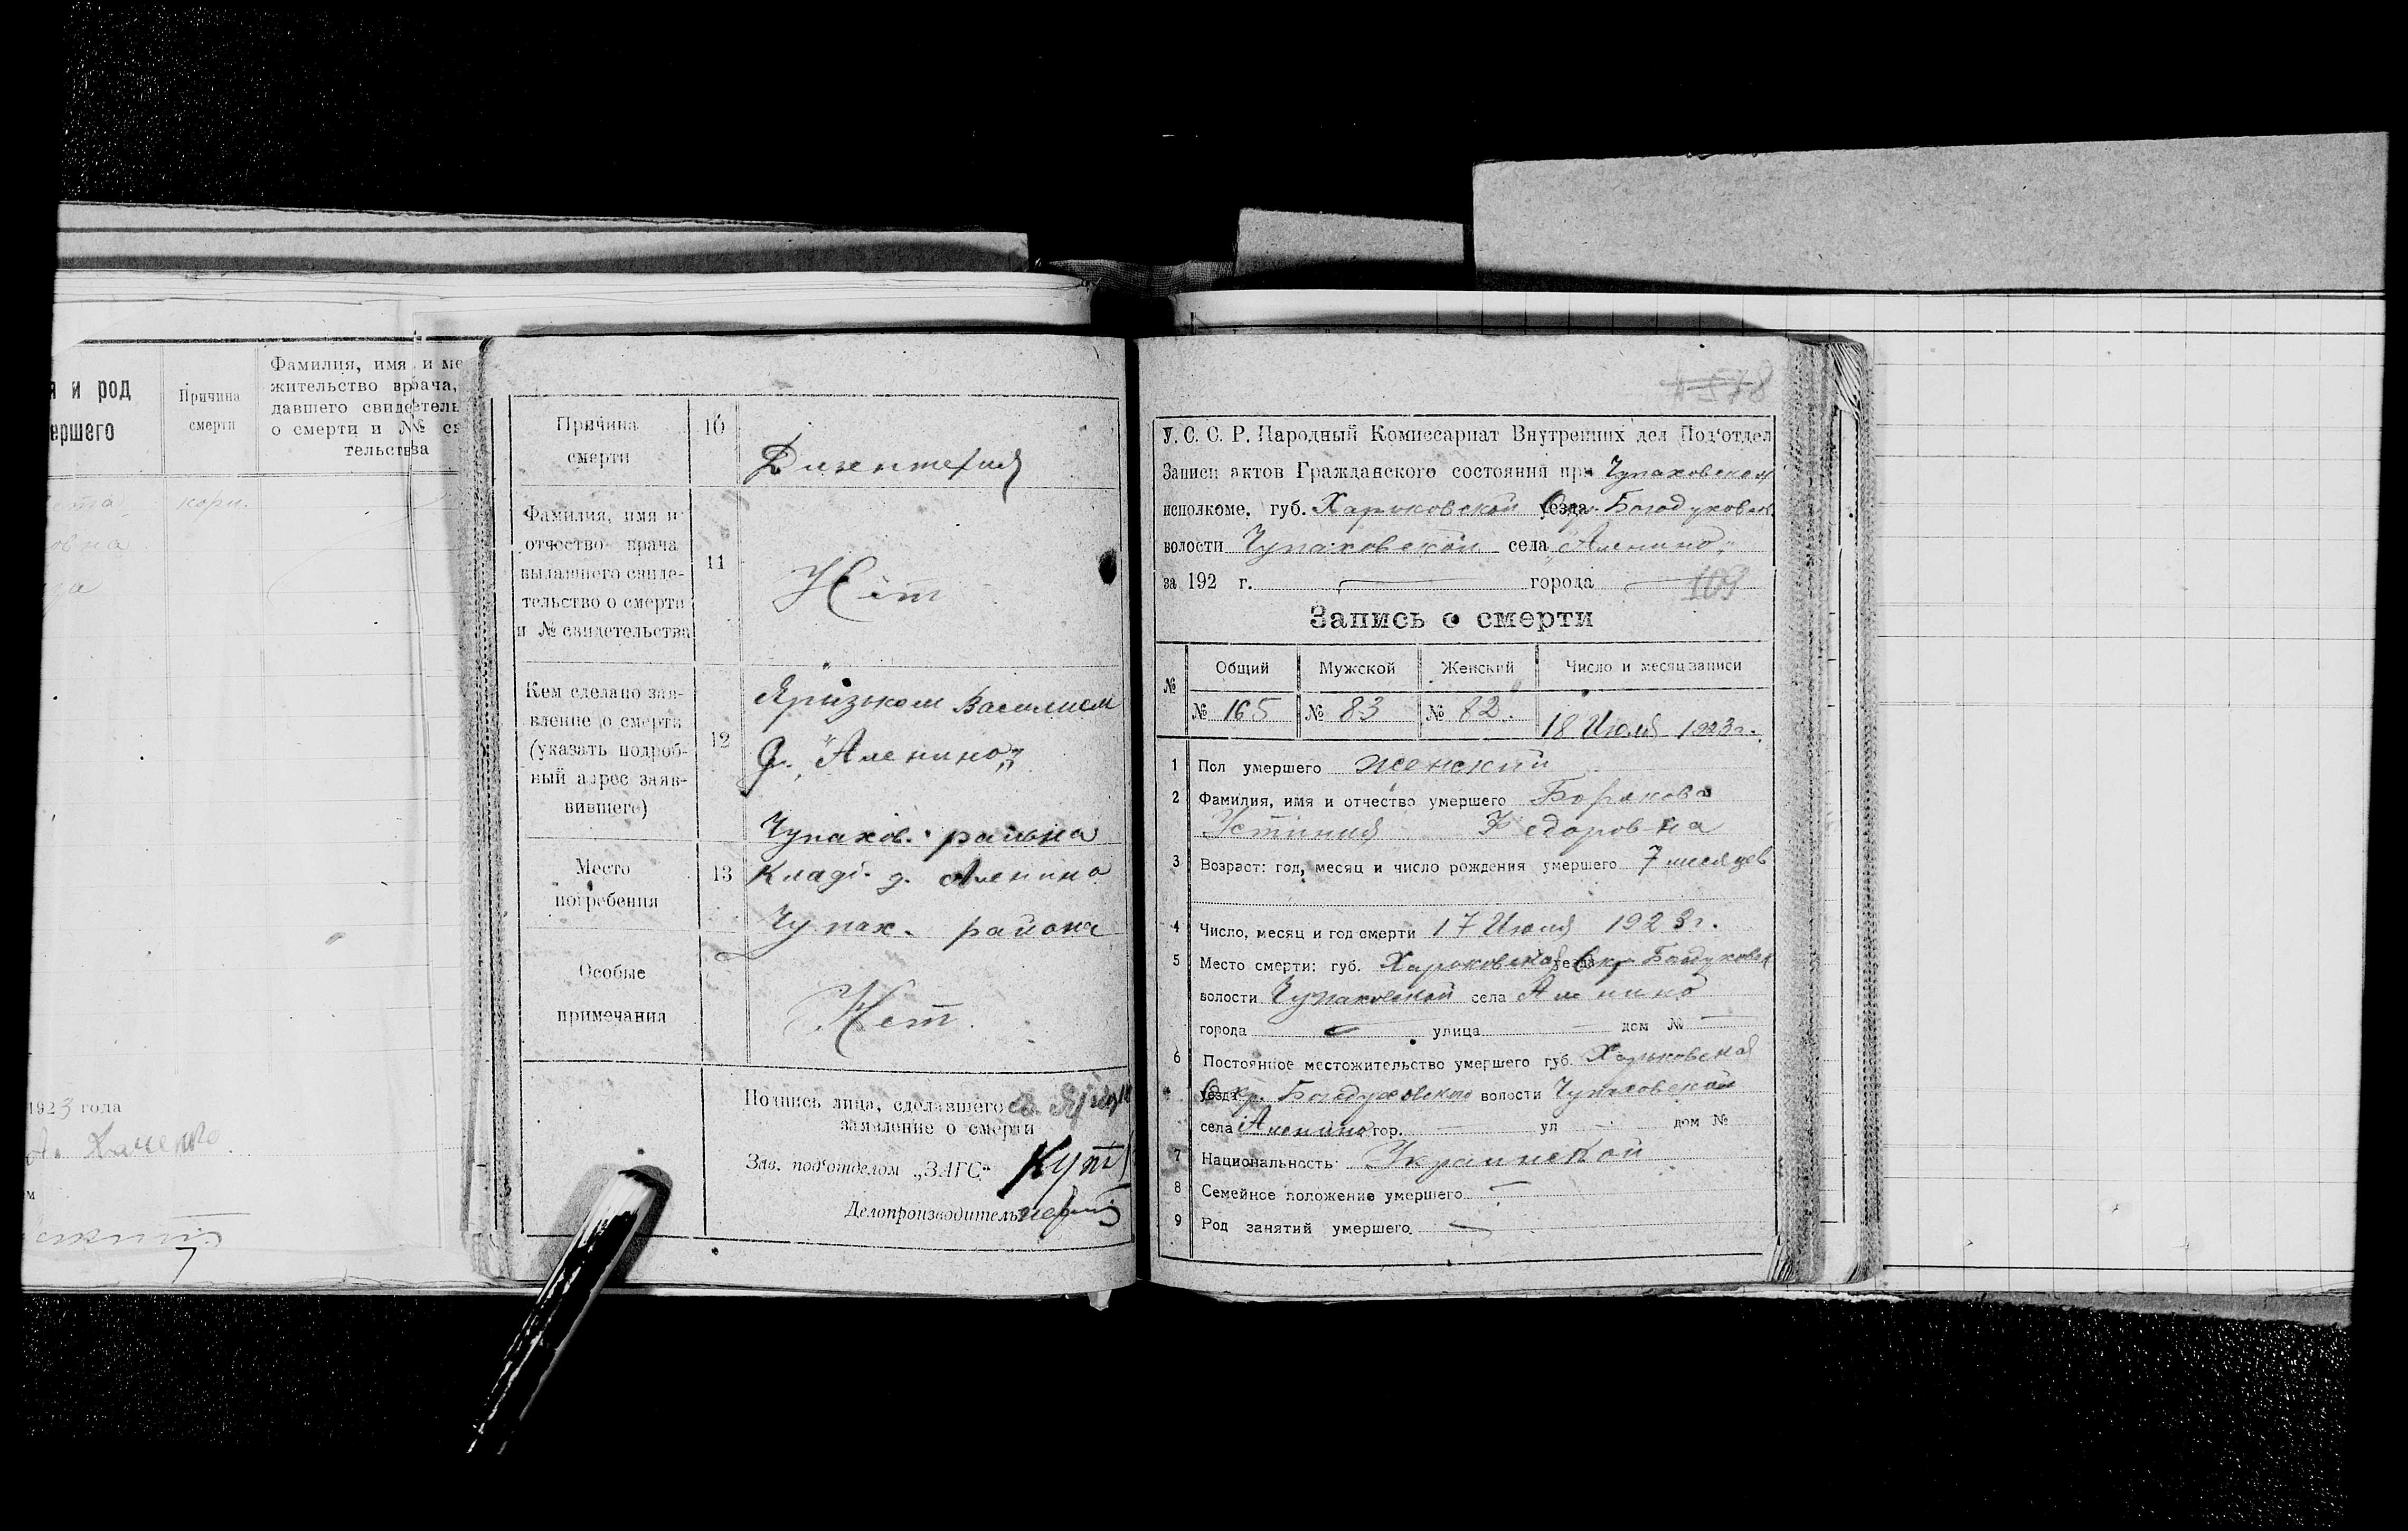 и род
ершего
Причина
смерти
Фамилия, имя и ме
жительство врача,
давшего свидетель
о смерти и №№ св
тельства
кори.
овна
1923 года
Причина
смерти
10
Дизентерия
Фамилия, имя и
отчество врача
выдавшего свиде-
тельство о смерти
и № свидетельства
11
Нет
Кем сделано зая-
вление о смерти
(указать подроб-
ный адрес заяв-
вившего)
12
Василием
д. „Аленино„
Чупахов. района
Место
погребения
13
Кладб. д. Аленино
Чупах. района
Особые
примечания
Нет.
Подпись лица, сделавшего
заявление о смерти
Зав. под‘отделом „ЗАГС“
Делопроизводитель
У. С. С. Р. Народный Комиссариат Внутренних дел Под‘отдел
Записи актов Гражданского состояния при Чупаховском
исполкоме, губ. Харьковской Уезда Богодуховск
волости Чупаховской села „Аленино„
за 192 г. города
109
Запись о смерти
№ Общий Мужской Женский Число и месяц записи
№ 165 № 83 № 82. 18 Июля 1923г.
1 Пол умершего женский
2 Фамилия, имя и отчество умершего
Устиния Федоровна
3 Возраст: год, месяц и число рождения умершего 7 месяцев
4 Число, месяц и год смерти 17 Июля 1923г.
5 Место смерти: губ. Харьковская уезда Окр.
волости Чупаховской села Аленино
города улица дом №
6 Постоянное местожительство умершего губ. Харьковская
уезда Окр. Богодуховского волости Чупаховской
села Аленино гор. ул дом №
7 Национальность Украинской
8 Семейное положение умершего
9 Род занятий умершего